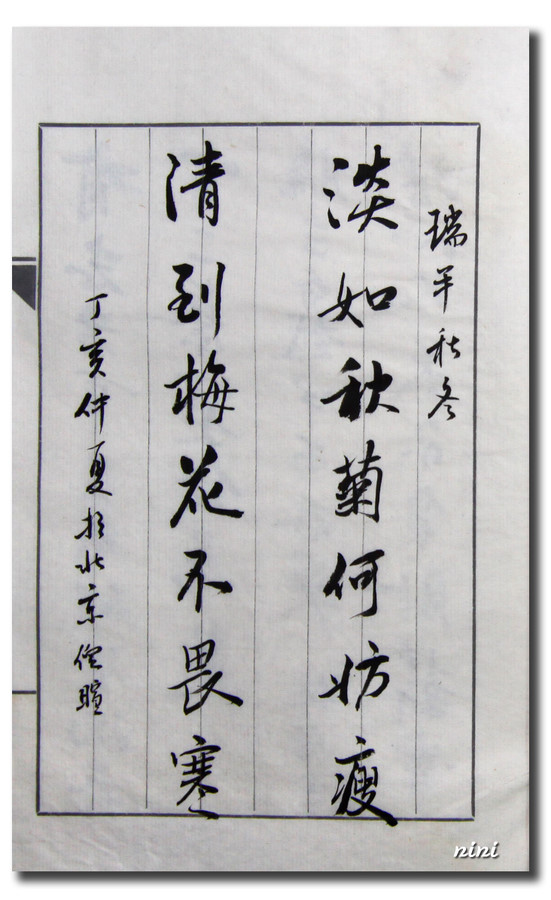 瑞平秋冬
淡如秋菊何妨瘦
清到梅花不畏寒
丁亥仲夏於北京僧暄
nini